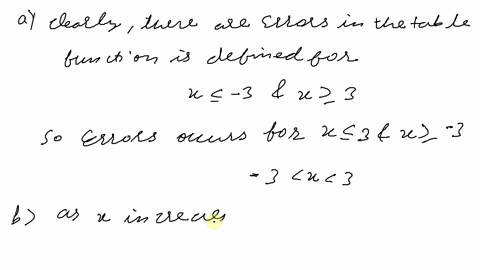 a) clearly, there are errors in the table
function is defined for
x ≤ -3 & x ≥ 3
so errors occurs for x ≤ 3 & x ≥ -3
-3 < x < 3
b) as x increas